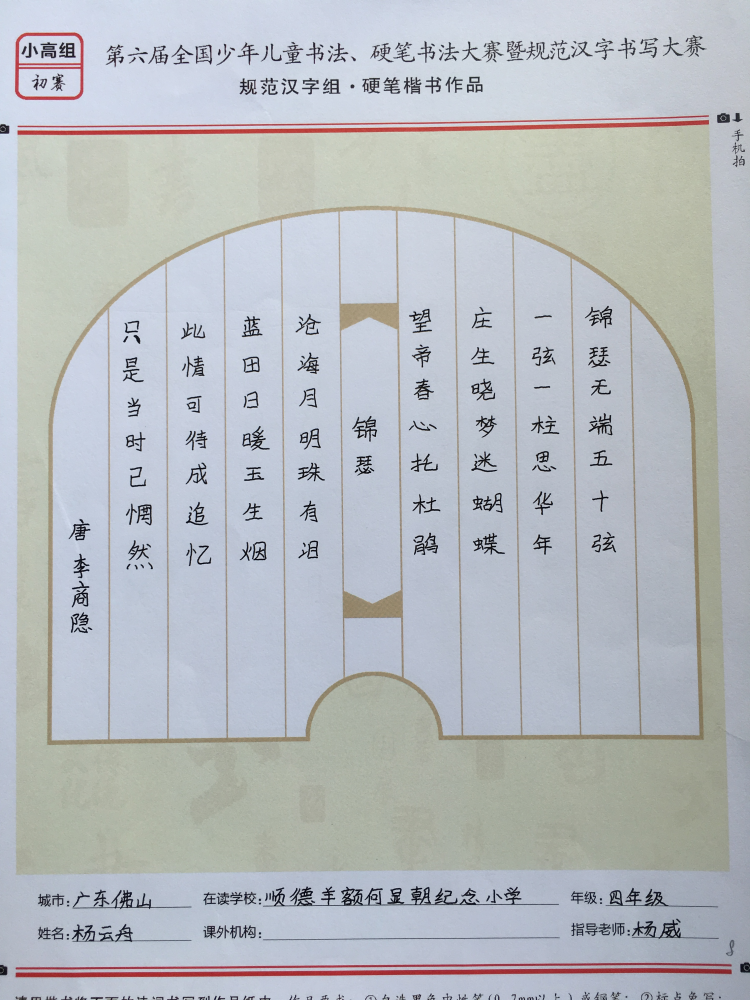 小高组
初赛
第六届全国少年儿童书法、硬笔书法大赛暨规范汉字书写大赛
规范汉字组·硬笔楷书作品
手机拍
锦瑟无端五十弦
一弦一柱思华年
庄生晓梦迷蝴蝶
望帝春心托杜鹃
锦瑟
沧海月明珠有泪
蓝田日暖玉生烟
此情可待成追忆
只是当时已惘然
唐 李商隐
城市:广东佛山 在读学校:顺德羊额何显朝纪念小学 年级:四年级
姓名:杨云舟 课外机构: 指导老师:杨威